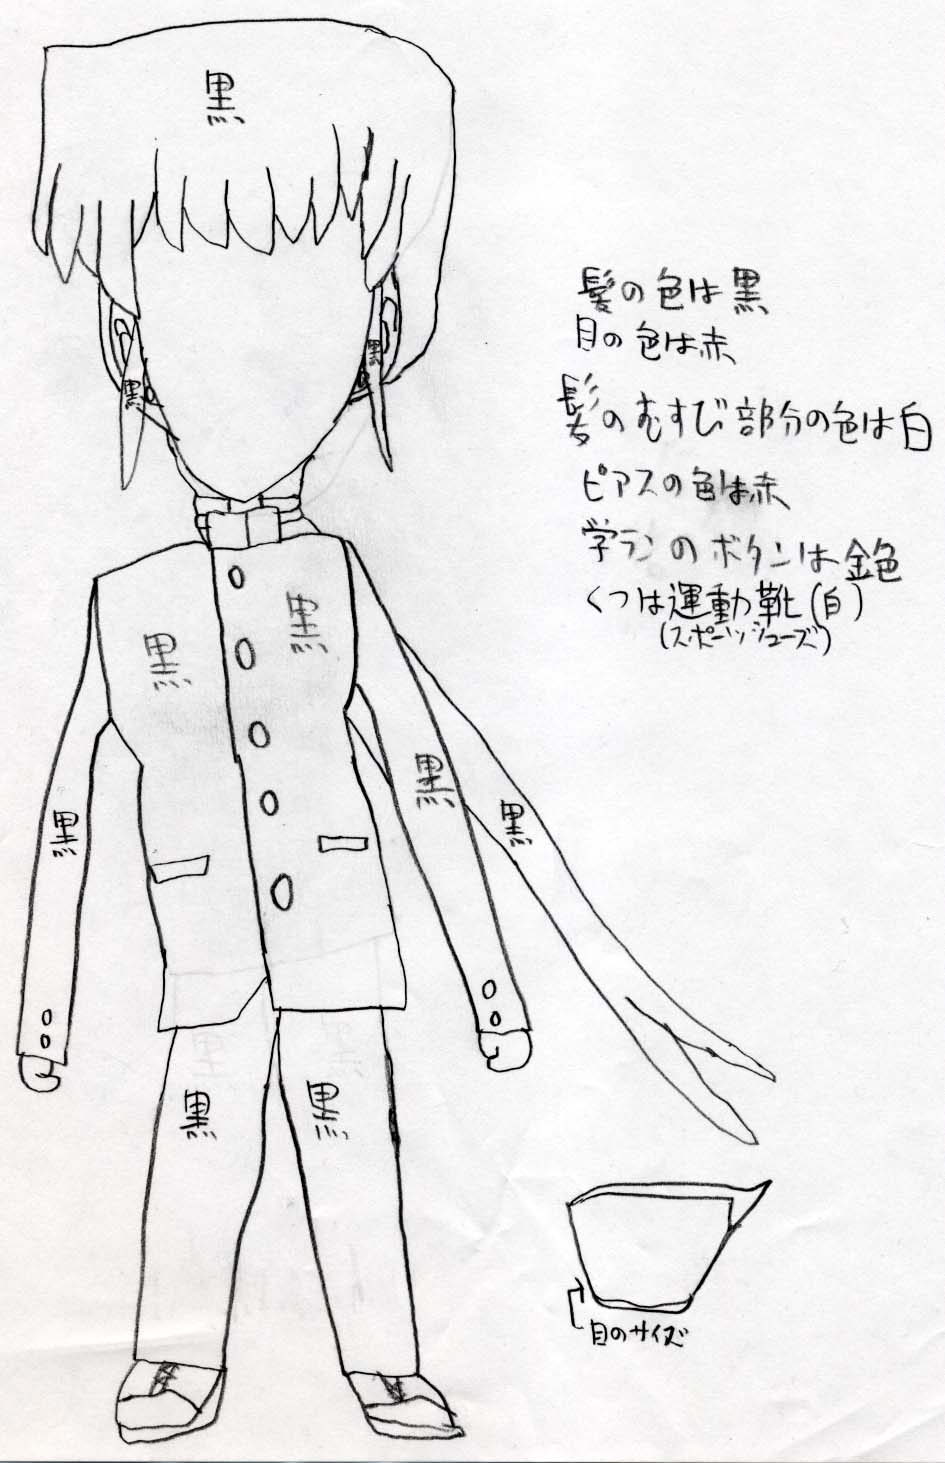 黒
黒
黒
黒
黒
黒
黒
黒
黒
黒
髪の色は黒
目の色は赤
髪のむすび部分の色は白
ピアスの色は赤
学ランのボタンは金色
くつは運動靴(白)
(スポーツシューズ)
目のサイズ